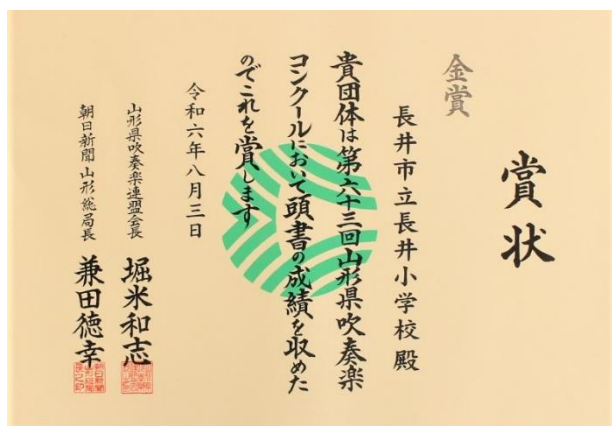 賞状
金賞
長井市立長井小学校殿
貴団体は第六十三回山形県吹奏楽
コンクールにおいて頭書の成績を収めた
のでこれを賞します
令和六年八月三日
山形県吹奏楽連盟会長 堀米和志
朝日新聞山形総局長 兼田徳幸